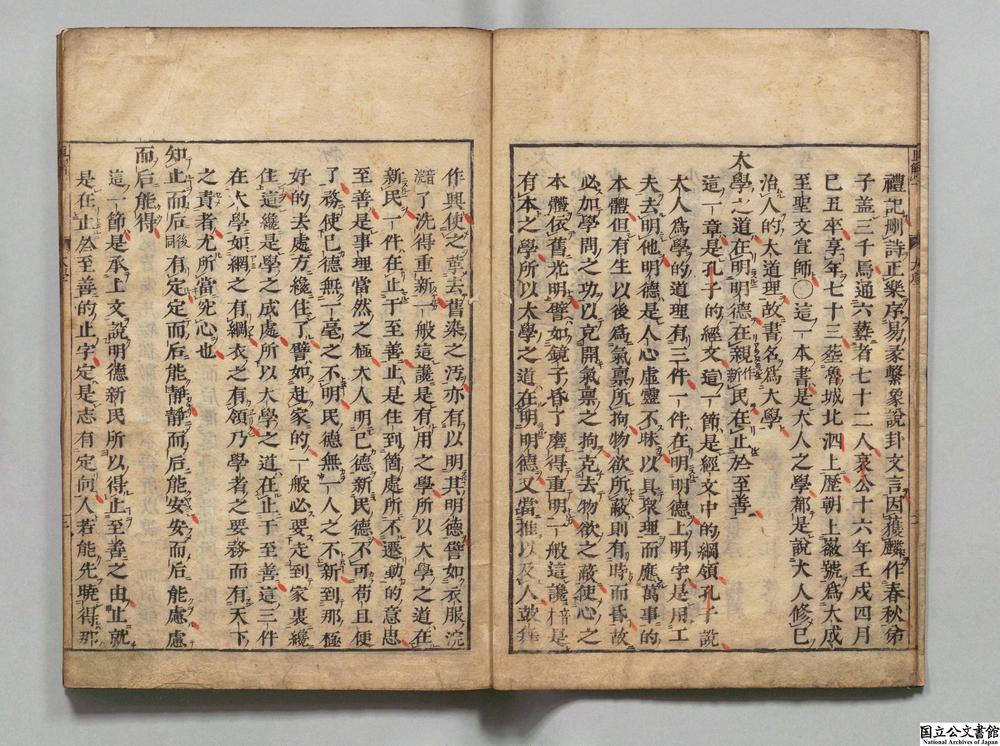 禮記刪詩正樂序易彖繫象說卦文言因獲麟作春秋弟
子蓋三千焉通六藝者七十二人哀公十六年壬戌四月
巳丑卒享年七十三葬魯城北泗上歷朝上徽號爲大成
至聖文宣師〇這一本書是大人之學都是說大人修巳
治人的大道理故書名爲大學
大學之道在明明德在親作新民在止於至善
這一章是孔子的經文這一節是經文中的綱領孔子說
大人爲學的道理有三件一件在明明德上明字是用工
夫去明他明德是人心虛靈不昧以具衆理而應萬事的
本體但有生以後爲氣稟所拘物欲所蔽則有時而昏故
必加學問之功以克開氣稟之拘克去物欲之蔽使心之
本體依舊光明譬如鏡子昏了磨得重明一般這纔是
有本之學所以大學之道在明明德又當推以及人鼓舞
作興使之革去舊染之汚亦有以明其明德譬如衣服浣
了洗得重新一般這纔是有用之學所以大學之道在
新民一件在止于至善止是住到箇處所不遷動的意思
至善是事理當然之極大人明巳德新民德不可苟且便
了務使巳德無一毫之不明民德無一人之不新到那極
好的去處方纔住了譬如赴家的一般必要走到家裏纔
住這纔是學之成處所以大學之道在止于至善這三件
在大學如網之有綱衣之有領乃學者之要務而有天下
之責者尤所當究心也
知止而后後有定定而后能靜靜而后能安安而后能慮慮
而后能得
這一節是承上文說明德新民所以得止至善之由止就
是在止於至善的止字定是志有定向人若能先曉得那
国立公文書館
National Archives of Japan